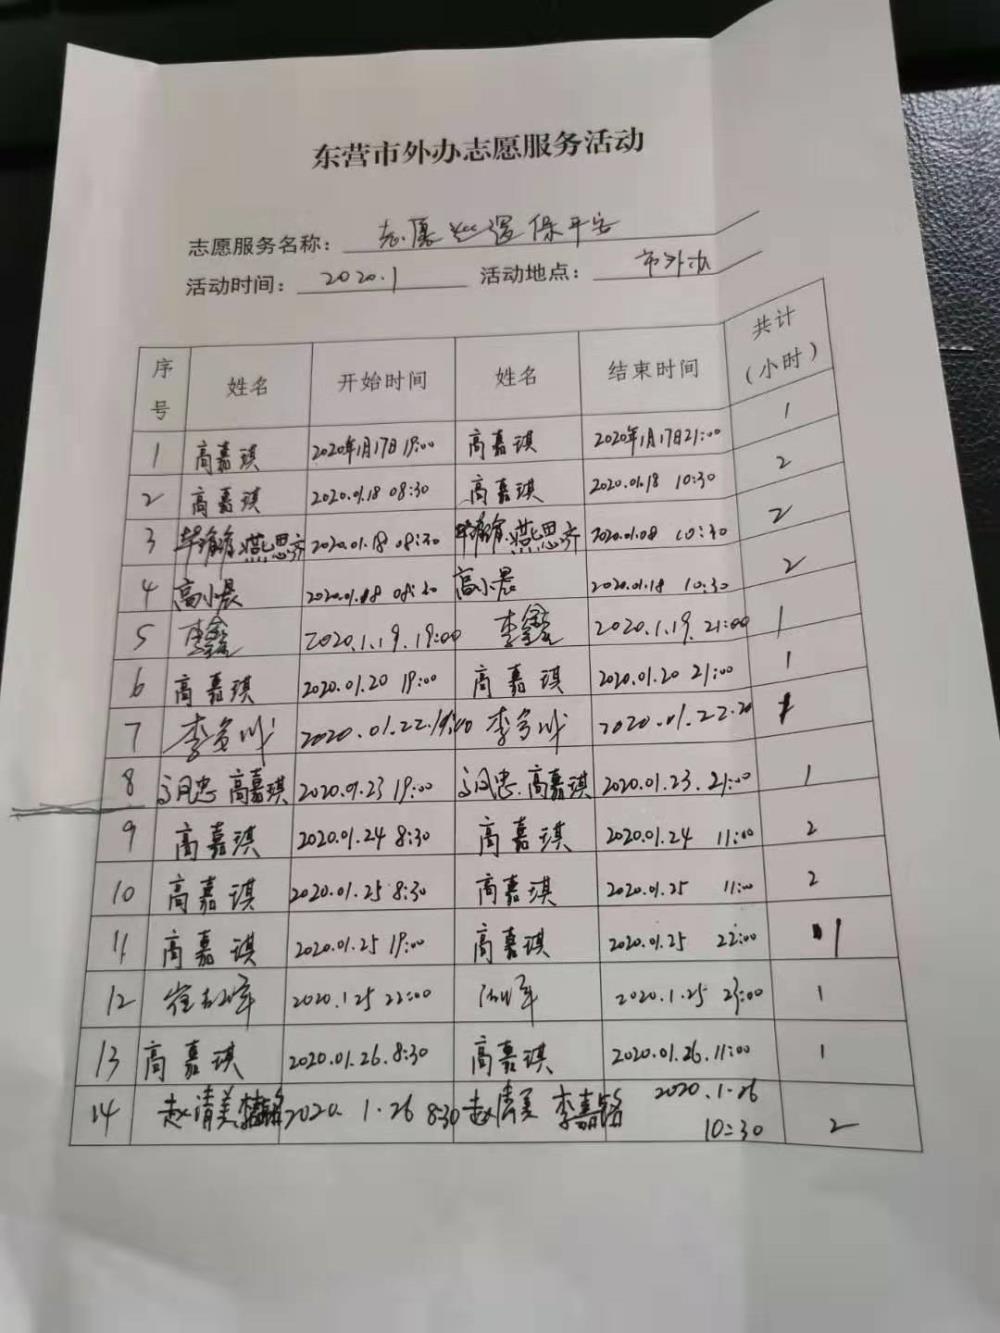 东营市外办志愿服务活动
志愿服务名称： 志愿巡逻保平安
活动时间： 2020.1 活动地点： 市外办
序号 姓名 开始时间 姓名 结束时间 共计（小时）
1 高嘉琪 2020年1月17日19:00 高嘉琪 2020年1月17日21:00 1
2 高嘉琪 2020.01.18 08:30 高嘉琪 2020.01.18 10:30 2
3 燕思齐 2020.01.18 08:30 燕思齐 2020.01.08 10:30 2
4 高小晨 2020.01.18 08:30 高小晨 2020.01.18 10:30 2
5 李鑫 2020.1.19.19:00 李鑫 2020.1.19.21:00 1
6 高嘉琪 2020.01.20 19:00 高嘉琪 2020.01.20 21:00 1
7 2020.01.22. 2020.01.22.20 1
8 高嘉琪 2020.01.23 19:00 高嘉琪 2020.01.23.21:00 1
9 高嘉琪 2020.01.24 8:30 高嘉琪 2020.01.24 11:00 2
10 高嘉琪 2020.01.25 8:30 高嘉琪 2020.01.25 11:00 2
11 高嘉琪 2020.01.25 19:00 高嘉琪 2020.01.25 22:00 1
12 2020.1.25 22:00 2020.1.25 23:00 1
13 高嘉琪 2020.01.26.8:30 高嘉琪 2020.01.26.11:00 1
14 赵清美 2020.1.26 8:30 赵清美 李嘉铭 2020.1.26 10:30 2